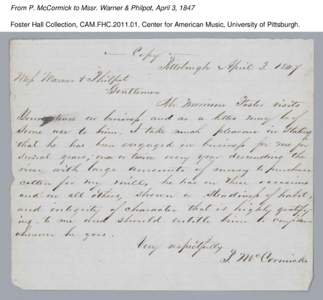 From P. McCormick to Mssr. Warner & Philpot, April 3, 1847
Foster Hall Collection, CAM.FHC.2011.01, Center for American Music, University of Pittsburgh.
Copy
Pittsburgh April 3 1847
Mess Warner & Philpot
Gentlemen
Mr Morrison Foster visits
on business and as a letter may be of
some use to him, I take much pleasure in stating
that he has been engaged in business for me for
several years, now & then every year descending the
river with large amounts of money to purchase
cotton for our mills, he has on these occasions
and in all others, shown a steadiness of habits,
and integrity of character that is highly gratify
ing to me and should entitle him to
wherever he goes.
Very respectfully
P. McCormick